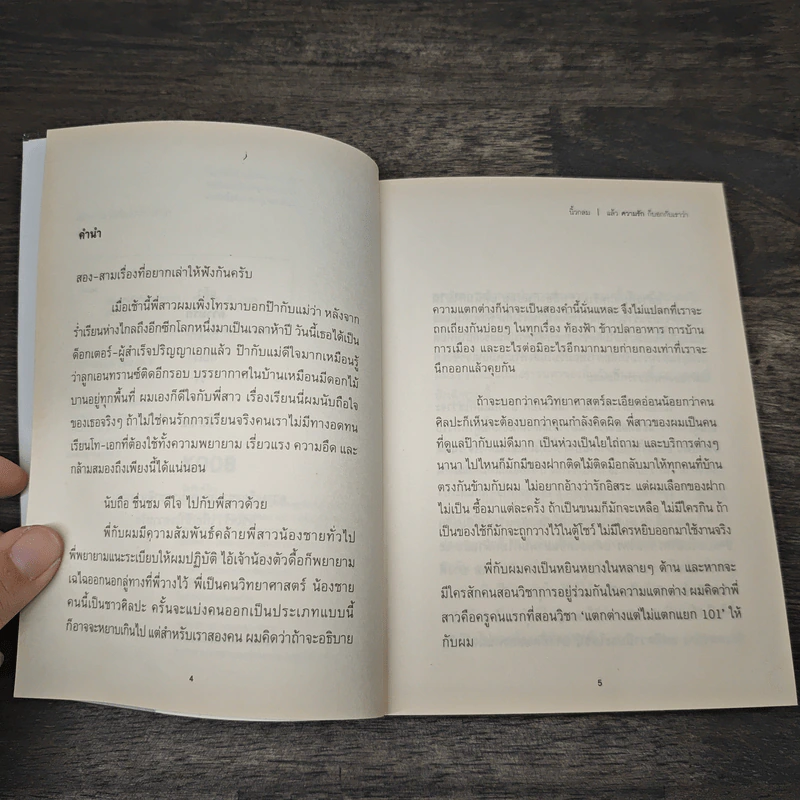 คำนำ
สอง-สามเรื่องที่อยากเล่าให้ฟังกันครับ
เมื่อเช้านี้พี่สาวผมเพิ่งโทรมาบอกป๊ากับแม่ว่า หลังจาก
ร่ำเรียนห่างไกลถึงอีกซีกโลกหนึ่งมาเป็นเวลาห้าปี วันนี้เธอได้เป็น
ด็อกเตอร์-ผู้สำเร็จปริญญาเอกแล้ว ป๊ากับแม่ดีใจมากเหมือนรู้
ว่าลูกเอนทรานซ์ติดอีกรอบ บรรยากาศในบ้านเหมือนมีดอกไม้
บานอยู่ทุกพื้นที่ ผมเองก็ดีใจกับพี่สาว เรื่องเรียนนี่ผมนับถือใจ
ของเธอจริงๆ ถ้าไม่ใช่คนรักการเรียนจริงคนเราไม่มีทางอดทน
เรียนโท-เอกที่ต้องใช้ทั้งความพยายาม เรี่ยวแรง ความอึด และ
กล้ามสมองถึงเพียงนี้ได้แน่นอน
นับถือ ชื่นชม ดีใจ ไปกับพี่สาวด้วย
พี่กับผมมีความสัมพันธ์คล้ายพี่สาวน้องชายทั่วไป
พี่พยายามแนะระเบียบให้ผมปฏิบัติ ไอ้เจ้าน้องตัวดื้อก็พยายาม
เฉไฉออกนอกลู่ทางที่พี่วางไว้ พี่เป็นคนวิทยาศาสตร์ น้องชาย
คนนี้เป็นชาวศิลปะ ครั้นจะแบ่งคนออกเป็นประเภทแบบนี้
ก็อาจจะหยาบเกินไป แต่สำหรับเราสองคน ผมคิดว่าถ้าจะอธิบาย
4
นิ้วกลม | แล้ว ความรัก ก็บอกกับเราว่า
ความแตกต่างก็น่าจะเป็นสองคำนี้นั่นแหละ จึงไม่แปลกที่เราจะ
ถกเถียงกันบ่อยๆ ในทุกเรื่อง ท้องฟ้า ข้าวปลาอาหาร การบ้าน
การเมือง และอะไรต่อมิอะไรอีกมากมายก่ายกองเท่าที่เราจะ
นึกออกแล้วคุยกัน
ถ้าจะบอกว่าคนวิทยาศาสตร์ละเอียดอ่อนน้อยกว่าคน
ศิลปะก็เห็นจะต้องบอกว่าคุณกำลังคิดผิด พี่สาวของผมเป็นคน
ที่ดูแลป๊ากับแม่ดีมาก เป็นห่วงเป็นใยไถ่ถาม และบริการต่างๆ
นานา ไปไหนก็มักมีของฝากติดไม้ติดมือกลับมาให้ทุกคนที่บ้าน
ตรงกันข้ามกับผม ไม่อยากอ้างว่ารักอิสระ แต่ผมเลือกของฝาก
ไม่เป็น ซื้อมาแต่ละครั้ง ถ้าเป็นขนมก็มักจะเหลือ ไม่มีใครกิน ถ้า
เป็นของใช้ก็มักจะถูกวางไว้ในตู้โชว์ ไม่มีใครหยิบออกมาใช้งานจริง
พี่กับผมคงเป็นหยินหยางในหลายๆ ด้าน และหากจะ
มีใครสักคนสอนวิชาการอยู่ร่วมกันในความแตกต่าง ผมคิดว่าพี่
สาวคือครูคนแรกที่สอนวิชา 'แตกต่างแต่ไม่แตกแยก 101' ให้
กับผม
5